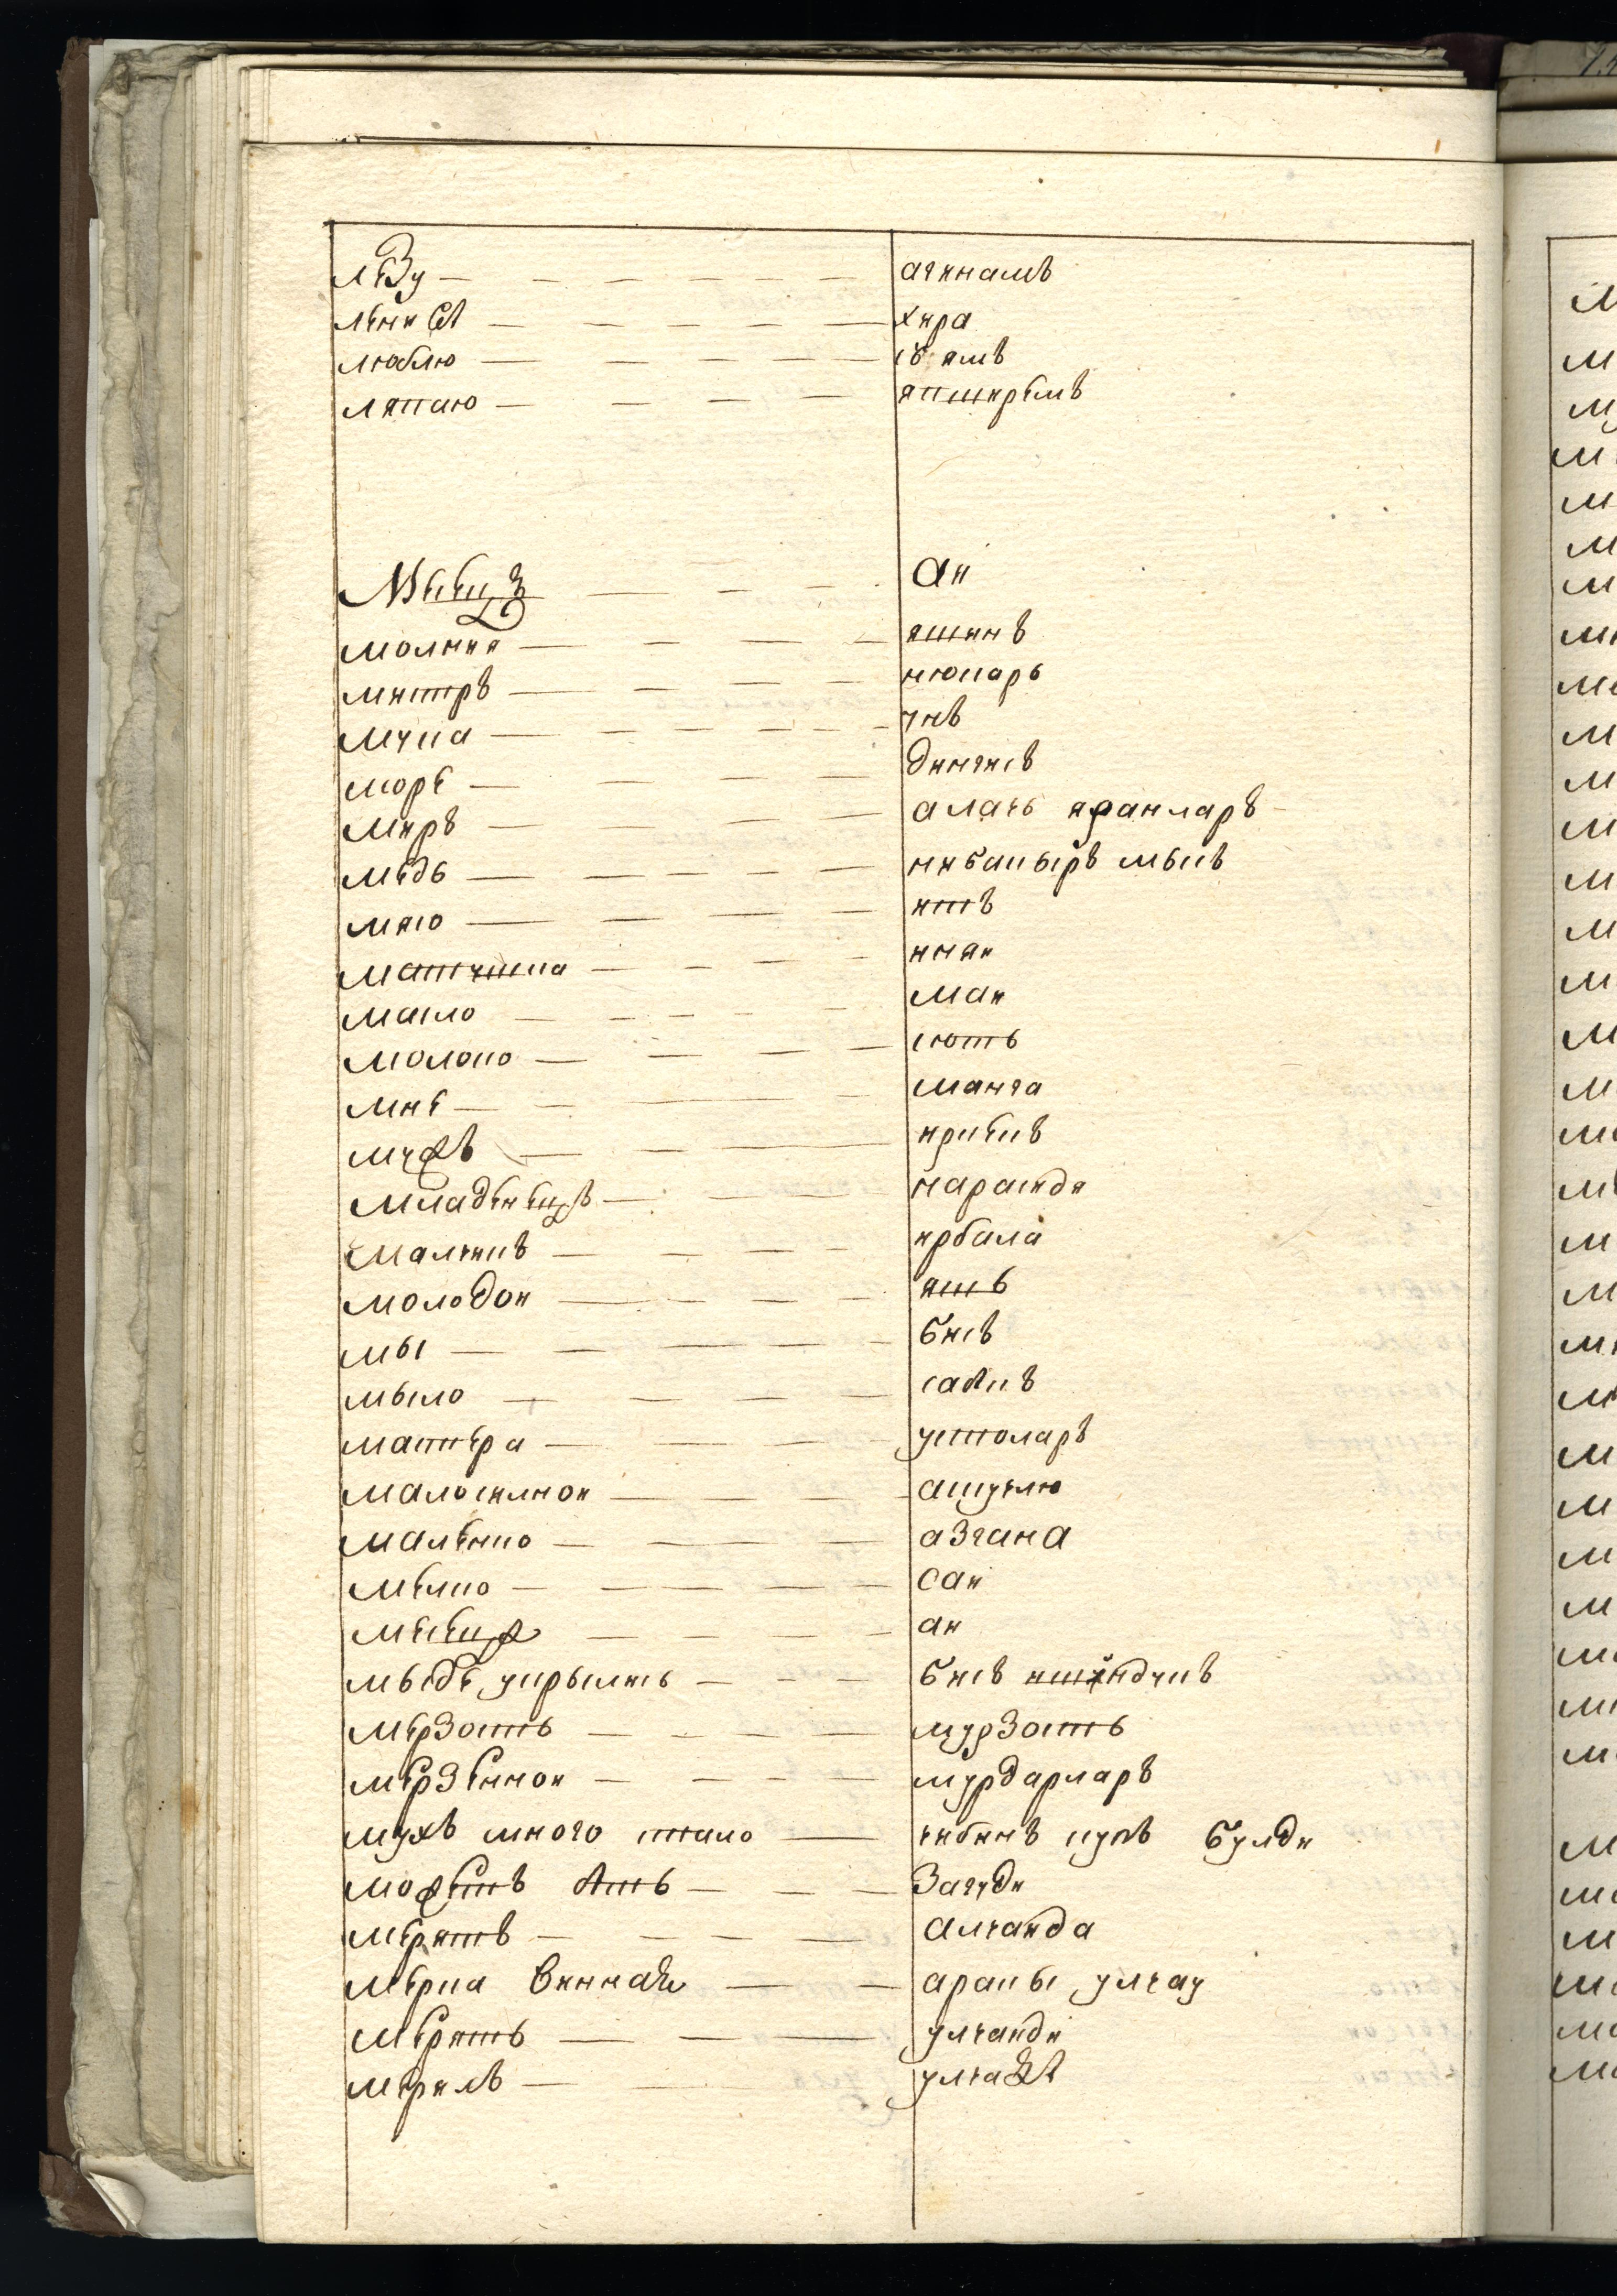 лѣзу — — — — — — агинамъ
лѣнися — — — — — хира
люблю — — — — — сӱямъ
ляпаю — — — — япширемъ
Мѣсецъ — — — ай
молния — — — — яшинъ
митръ — — — — нюкаръ
мука — — — — — унъ
море — — — — дингисъ
миръ — — — — алачь яранларъ
медь — — — — — нибакыръ мыкъ
мяso — — — — итъ
матушка — — — — иняй
масло — — — — — май
молоко — — — — сють
мне — — — манга
мужъ — — — ирикекъ
младенецъ — — — карасиди
малчикъ — — — — ирбала
молодой — — — — яшь
мы — — — — — бисъ
мыло — — — — сабнъ
матера — — — — устоларъ
малосилной — — — — ашучлю
маленко — — — — — азгана
мелко — — — — — сай
месецъ — — — — ай
мысде укрылись — — — бисъ
мерзость — — — — мурзость
мерзенной — — — — мурдарларъ
мухъ много стало — чибинъ купъ булди
можетъ ять — — — загуди
мерятъ — — — — — алчайда
мерка винная — — аракы улчау
мерять — — — улчайди
мерилъ — — — улчадя